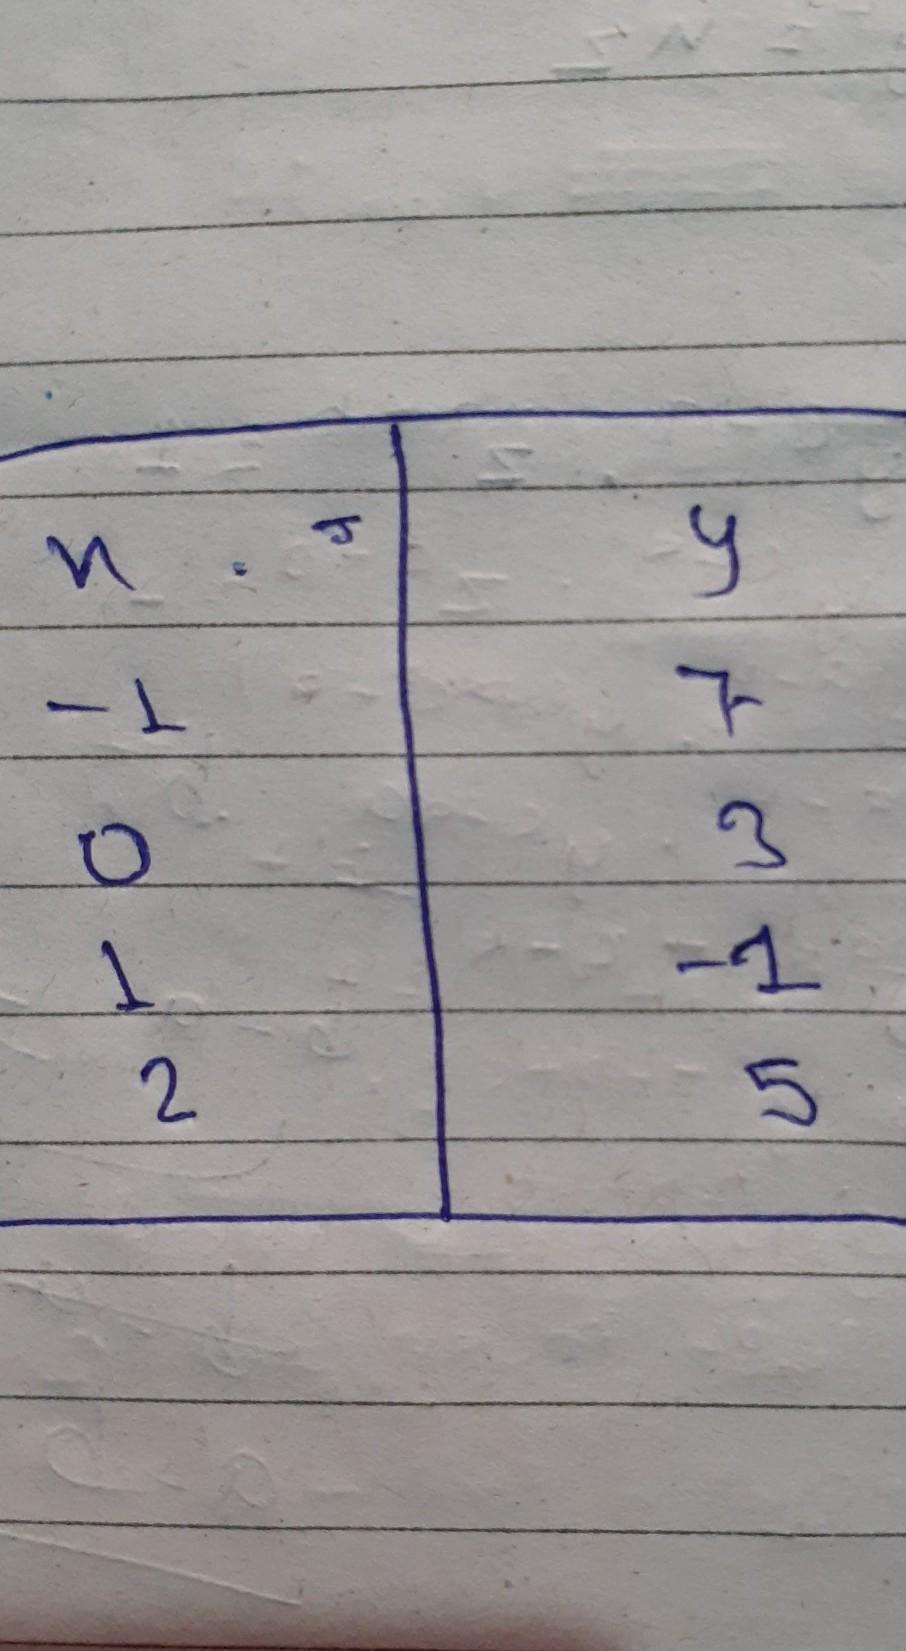 x y
-1 7
0 3
1 -1
2 5